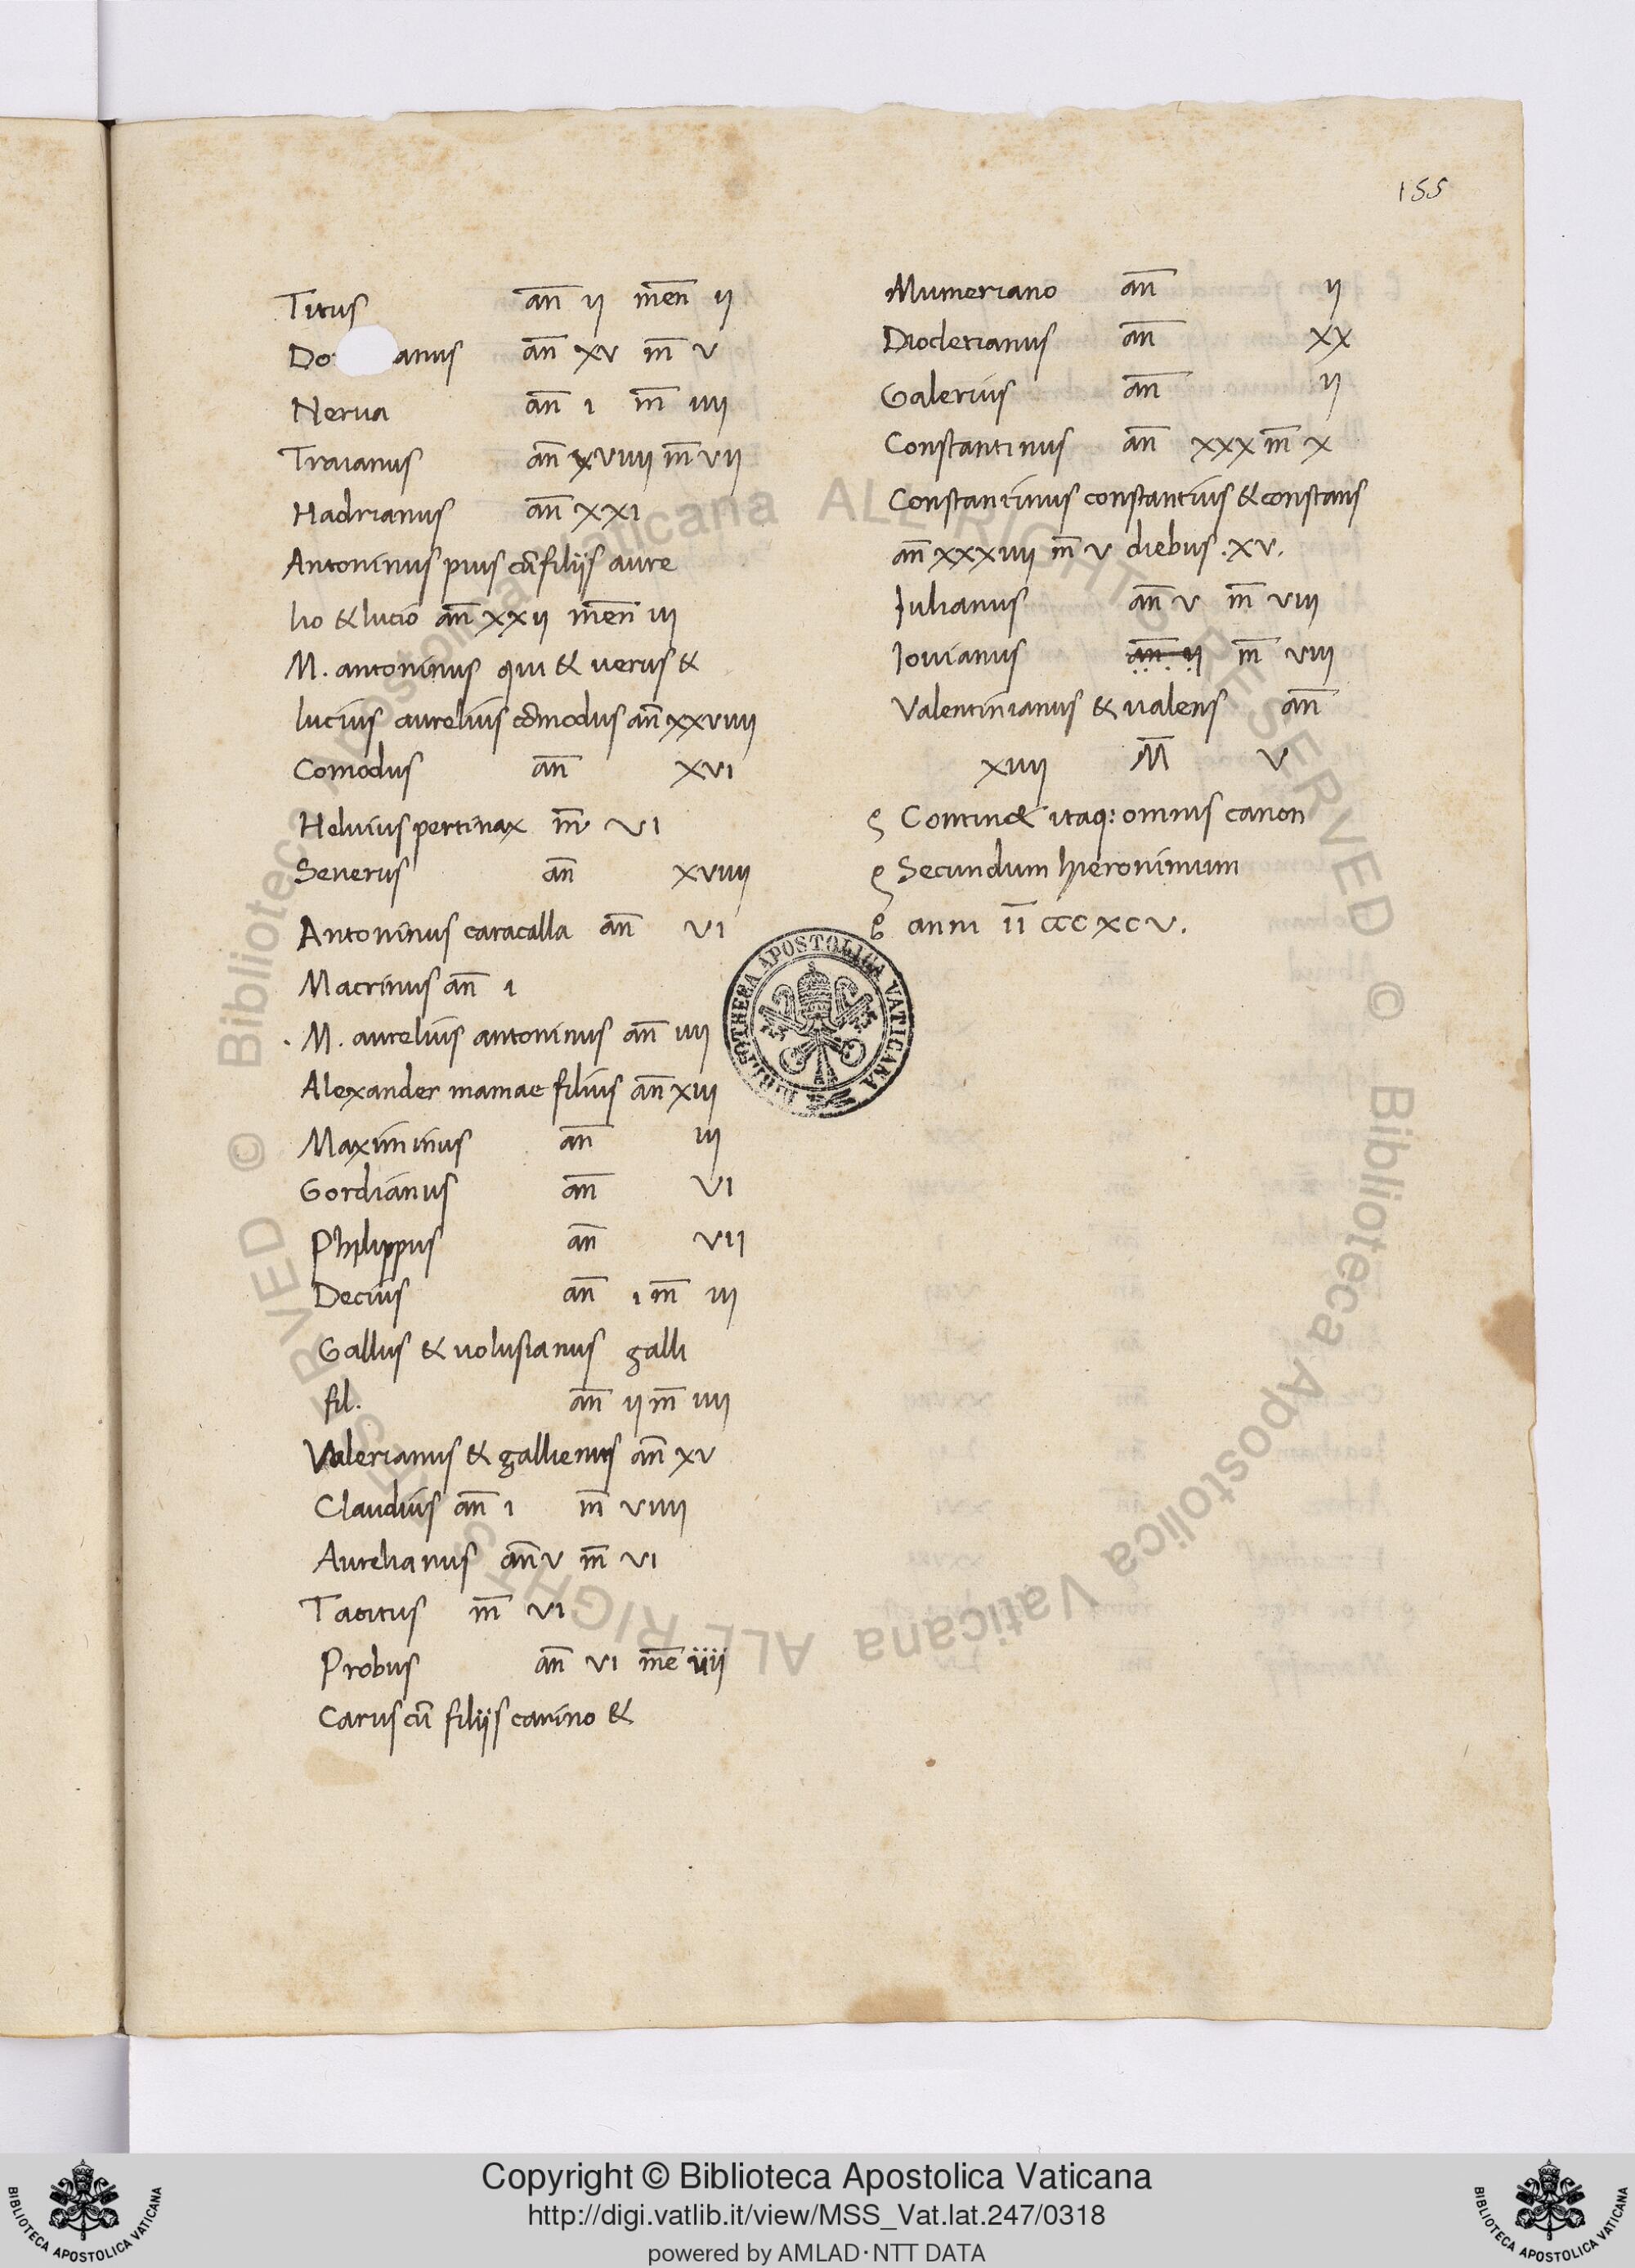 155
Titus an̅ ij men̅ ij
Do anus an̅ xv m̅ v
Nerua an̅ i m̅ iiij
Traianus an̅ xviiij m̅ vij
Hadrianus an̅ xxi
Antoninus pius cū filijs aure
lio & lucio an̅ xxij men̅ iij
M. antoninus qui & uerus &
lucius aurelius cōmodus an̅ xxviiij
Comodus an̅ xvi
Heluius pertinax m̅ vi
Seuerus an̅ xviiij
Antoninus caracalla an̅ vi
Macrinus an̅ i
. M. aurelius antoninus an̅ iiij
Alexander mamae filius an̅ xiij
Maximinus an̅ iij
Gordianus an̅ vi
Philippus an̅ vij
Decius an̅ i m̅ iij
Gallus & uolusianus galli
fil. an̅ ij m̅ iiij
Valerianus & gallienus an̅ xv
Claudius an̅ i m̅ viiij
Aurelianus an̅ v m̅ vi
Tacitus m̅ vi
Probus an̅ vi me̅ iiij
Carus cū filijs carino &
Mumeriano an̅ ij
Diocletianus an̅ xx
Galerius an̅ ij
Constantinus an̅ xxx m̅ x
Constantinus constantius & constans
an̅ xxxiiij m̅ v diebus .xv.
Iulianus an̅ v m̅ viij
Iouianus an̅ ij m̅ viij
Valentinianus & ualens an̅
xiiij M̅ V
Contin& itaq: omnis canon
Secundum hieronimum
anni I̅I̅ ccc xc v.
BIBLIOTHECA APOSTOLICA VATICANA
© Biblioteca Apostolica Vaticana ALL RIGHTS RESERVED © Biblioteca Apostolica Vaticana ALL RIGHTS RESERVED
Copyright © Biblioteca Apostolica Vaticana
http://digi.vatlib.it/view/MSS_Vat.lat.247/0318
powered by AMLAD·NTT DATA
BIBLIOTECA APOSTOLICA VATICANA
BIBLIOTECA APOSTOLICA VATICANA